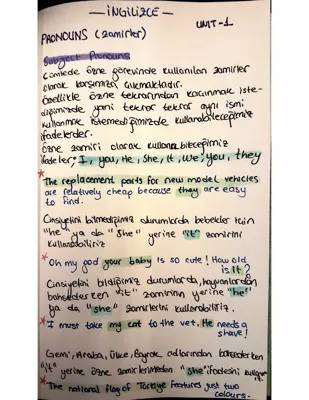 — İNGİLİZCE —
UNIT-1
PRONOUNS (zamirler)
Subject Pronouns
Cümlede özne görevinde kullanılan zamirler
olarak karşımıza çıkmaktadır.
Özellikle özne tekrarından kaçınmak iste-
diğimizde yani tekrar tekrar aynı ismi
kullanmak istemediğimizde kullanabileceğimiz
ifadelerdir.
Özne zamiri olarak kullanabileceğimiz
ifadeler; I, you, He, She, it, we, you, they
* The replacement parts for new model vehicles
are relatively cheap because they are easy
to find.
Cinsiyetini bilmediğimiz durumlarda bebekler için
"he" ya da "she" yerine "it" zamirini
kullanabiliriz
* Oh my god your baby is so cute! How old
is it?
Cinsiyetini bildiğimiz durumlarda, hayvanlardan
bahsederken "it" zamirinin yerine "he"
ya da "she" zamirlerini kullanabiliriz.
* I must take my cat to the vet. He needs a
shave!
Gemi, Araba, Ülke, Bayrak adlarından bahsederken
"it" yerine özne zamirlerinden "she" ifadesini
* The national flag of Türkiye features just two
colours.